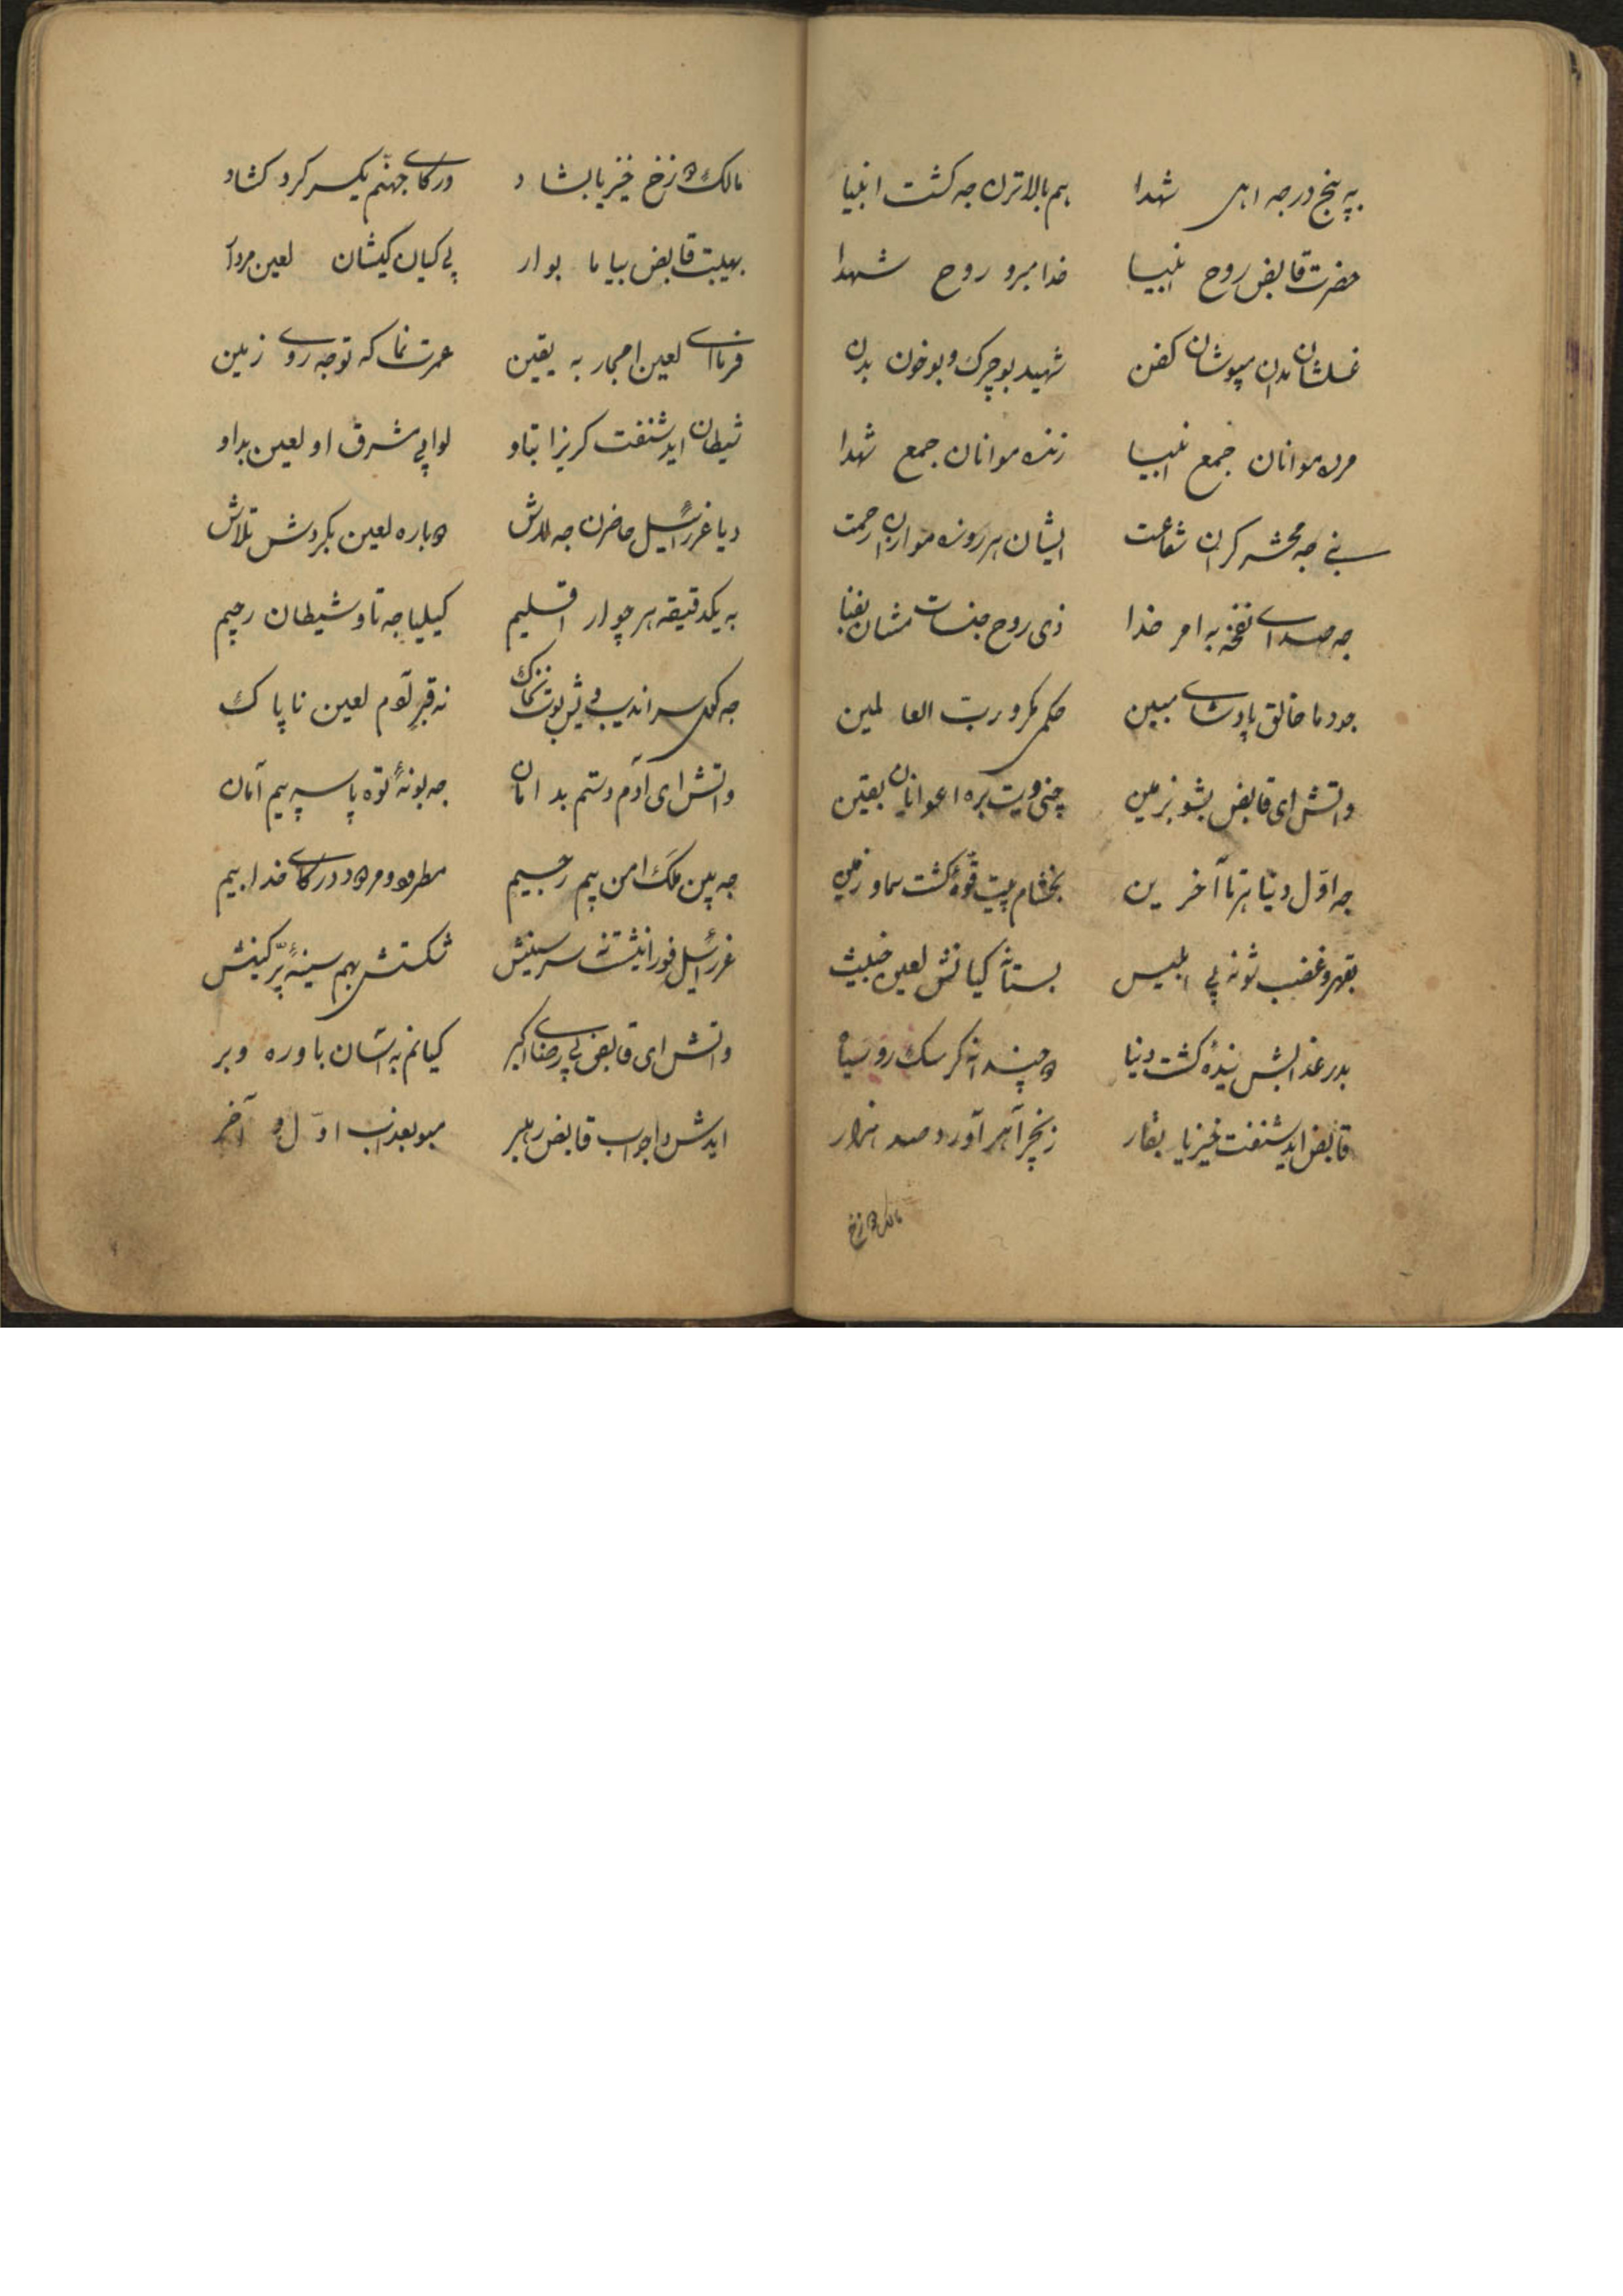 به پنج درجه اهل شهدا هم بالاترن جه کشت انبیا
حضرت قابض روح انبیا خدا مبرو روح شهدا
غسلشان مدن مپوشان کفن شهید بوچرک و بوخون بدن
مرده موانان جمع انبیا زنده موانان جمع شهدا
نبی جه محشر کران شفاعت ایشان هر روزه موارن رحمت
جه صدای نفخه به امر خدا ذی روح جنسات مشان بفنا
جودما خالق پادشای مبین حکم مکرو رب العالمین
واتش ای قابض بشو بزمین چنی ویت بره اعوانان یقین
جه اوّل دنیا هرتا آخرین بخشام پیت قوّهٔ کشت سما و زمین
بقهر و غضب شونه پی ابلیس بستانه کیانش لعین خبیث
بدر عذابش نیدهٔ کشت دنیا دو چندانه کر سک رو سیاه
قابض اید شنفت خیزیا بقار زنجیر آهر آورد صد هزار
مالک دوزخ
مالک دوزخ خیزیا بشاد درکای جهنّم یکسر کرد کشاد
بهیبت قابض بیاما بوار پی کیان کیشان لعین مردار
فرمای لعین امجار به یقین عمرت نما که توجه روی زمین
شیطان اید شنفت کریزا بتاو لوا پی مشرق او لعین بداو
دیا عزرائیل حاضرن جه لاش دوباره لعین بکردش تلاش
به یکدقیقه هر چوار اقلیم کیلیا جه تاو شیطان رجیم
جه کل سراندیب ویش بوت نه قبر آدم لعین ناپاک
واتش ای آدم دستم بدامان جه بونهٔ توه پاسه پیم آمان
جه پین ملک امن پیم رجیم مطرود و مردود درکای خدا بیم
عزرائیل فوراً نیشت نه سر سینش شکتش بهم سینهٔ پر کینش
واتش ای قابض پی رضای اکبر کیانم به آسان باوره وبر
ایدش دا جواب قابض رهبر مبو بعذاب اوّل و آخر